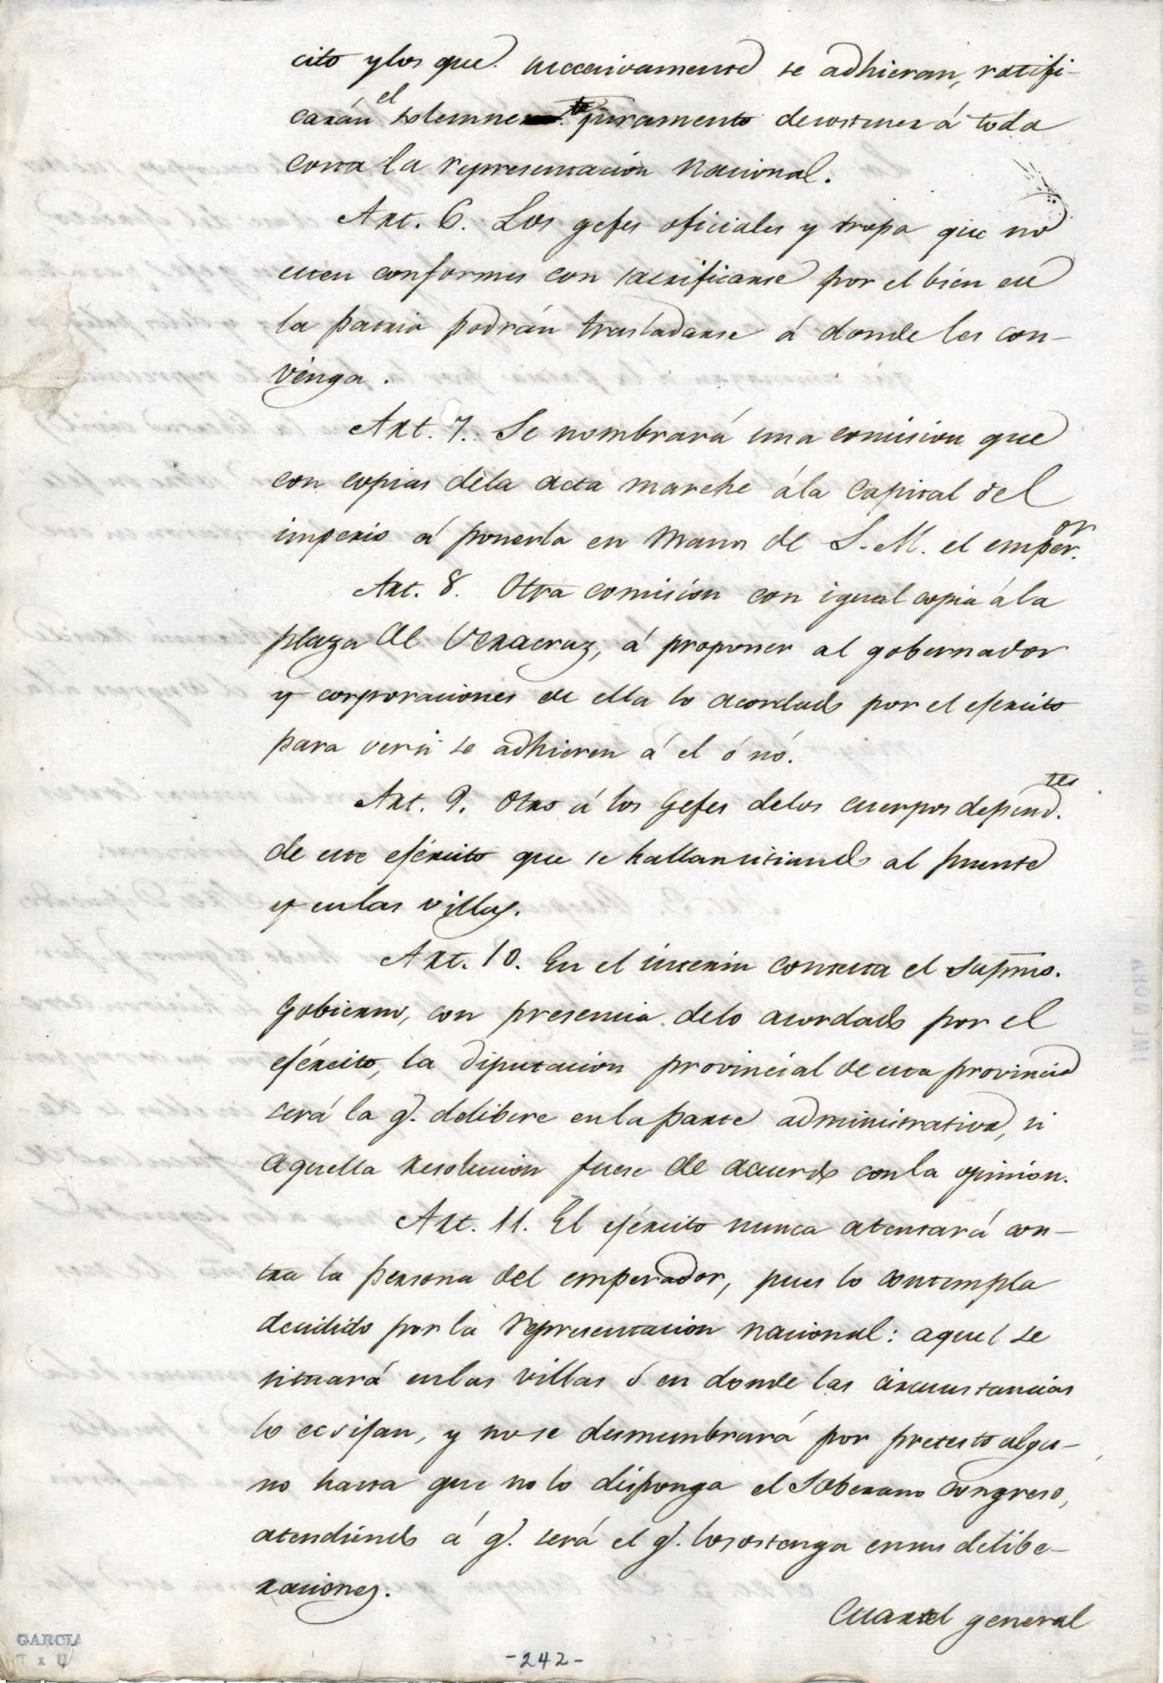 cito y los que succesivamente se adhieran, ratifi-
carán el solemne juramento de sostener á toda
costa la representacion Nacional.
Art. 6. Los gefes oficiales y tropa que no
esten conformes con sacrificarse por el bien de
la patria podrán trasladarse á donde les con-
venga.
Art. 7. Se nombrará una comision que
con copias dela acta marche ála Capital del
imperio á ponerla en manos de S. M. el emper.or
Art. 8. Otra comision con igual copia ála
plaza de Veracruz, á proponer al gobernador
y corporaciones de ella lo acordado por el ejército
para ver si se adhieren á el ó nó.
Art. 9. Otra á los Gefes delos cuerpos depend.tes
de este ejército que se hallan sitiando al puente
y en las villas.
Art. 10. En el interin contesta el Supmo.
Gobierno, con presencia delo acordado por el
ejército, la diputacion provincial de esta provincia
será la q. delibere en la parte administrativa, si
aquella resolucion fuese de acuerdo con la opinion.
Art. 11. El ejército nunca atentará con-
tra la persona del emperador, pues lo contempla
decidido por la representacion nacional: aquel se
situará en las villas ó en donde las circunstancias
lo ecsijan, y no se desmembrará por pretesto algu-
no hasta que no lo disponga el Soberano Congreso,
atendiendo á q. será el q. lo sostenga en sus delibe-
raciones.
Cuartel general
GARCIA
-242-